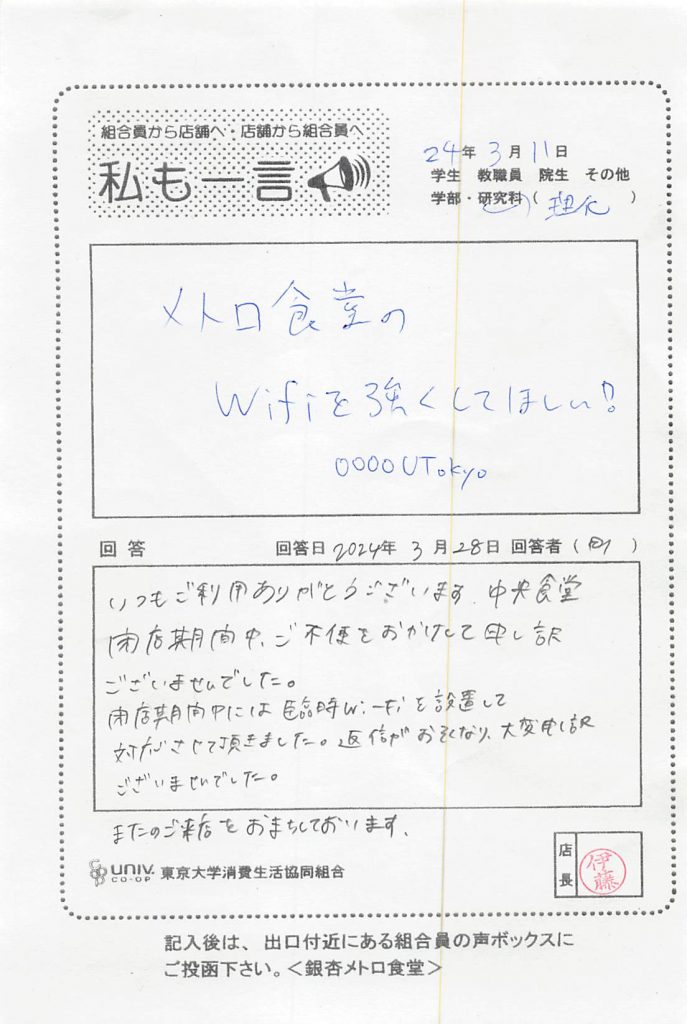 組合員から店舗へ・店舗から組合員へ
私も一言
24年 3月 11日
学生 教職員 院生 その他
学部・研究科( 理化 )
メトロ食堂の
Wifiを強くしてほしい!!
0000UTokyo
回答 回答日 2024年 3月 28日 回答者( )
いつもご利用ありがとうございます。中央食堂
閉店期間中、ご不便をおかけして申し訳
ございませんでした。
閉店期間中には臨時Wi-Fiを設置して
対応させて頂きました。返信がおそくなり、大変申し訳
ございませんでした。
またのご来店をおまちしております。
店長 伊藤
UNIV. CO-OP 東京大学消費生活協同組合
記入後は、出口付近にある組合員の声ボックスに
ご投函下さい。<銀杏メトロ食堂>